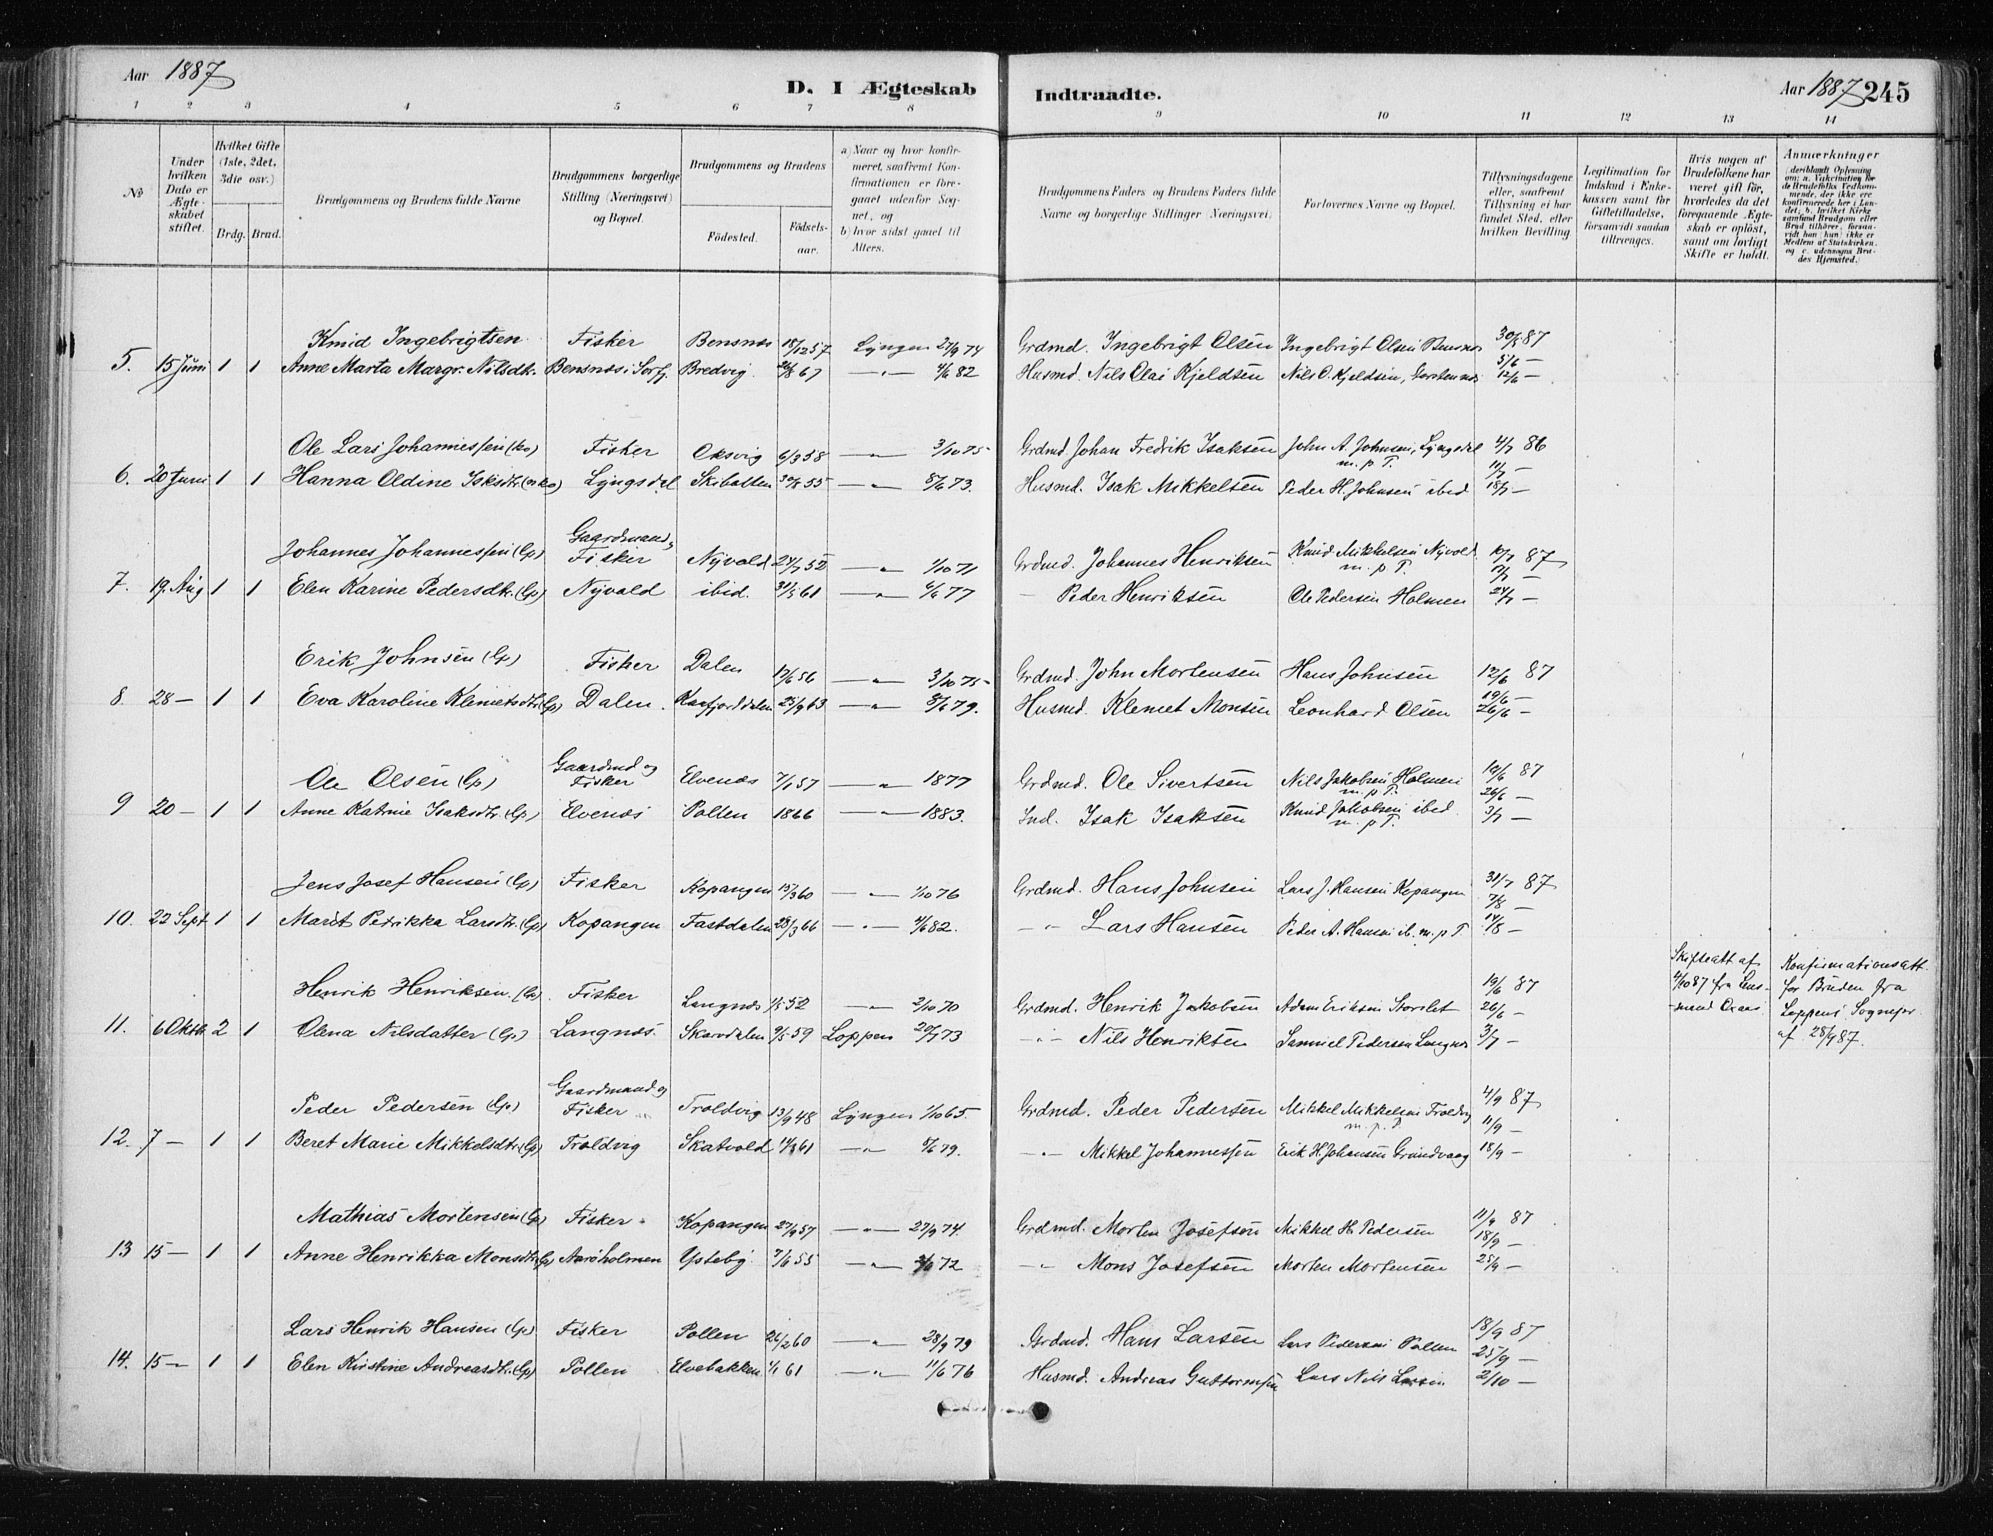 Aar 1887
D. I Ægteskab
Indtraadte.
Aar 1887 245
1 2 3 4 5 6 7 8 9 10 11 12 13 14
No
Under hvilken Dato er Ægteskabet stiftet.
Hvilket Gifte (1ste, 2det, 3die osv.)
Brdg. Brud.
Brudgommens og Brudens fulde Navne
Brudgommens borgerlige Stilling (Næringsvei) og Bopæl.
Brudgommens og Brudens
Födested.
Födselsaar.
a) Naar og hvor konfirmeret, saafremt Konfirmationen er foregaaet udenfor Sognet, og
b) hvor sidst gaaet til Alters.
Brudgommens Faders og Brudens Faders fulde Navne og borgerlige Stillinger (Næringsvei).
Forlovernes Navne og Bopæl.
Tillysningsdagene eller, saafremt Tillysning ei har fundet Sted, efter hvilken Bevilling
Legitimation for Indskud i Enkekassen samt for Giftetilladelse, forsaavidt saadan tiltrænges.
Hvis nogen af Brudefolkene har været gift för, hvorledes da det foregaaende Ægteskab er oplöst, samt om lovligt Skifte er holdt.
Anmærkninger (deriblandt Oplysning om: a. Vakcination for de Brudefolks Vedkommende, der ikke ere konfirmerede her i Landet; b. hvilket Kirkesamfund Brudgom eller Brud tilhörer, forsaavidt han (hun) ikke er Medlem af Statskirken, og c. udensogns Brudes Hjemsted.)
Knud Ingebrigtsen Fisker Bensnes 18/12 57 Lyngen 27/9 74 Grdmd. Ingebrigt Olsen Ingebrigt Olsen Bensnes 30/5 87
5. 15 Juni 1 1 Anne Marta Margr. Nilsdt. Bensnes i Sorfj. Bredvig 67 — " — 82 Husmd. Nils Olai Kjeldsen Nils O. Kjeldsen, 5/6 —
12/6 —
Ole Lars Johannessen (ko) Fisker Oksvig 6/3 58 — " — 3/10 75 Grdmd. Johan Fredrik Isaksen John A. Johnsen, Lyngsdal 4/7 86
m. p. T. 11/7 —
6. 20 Juni 1 1 Hanna Oldine Isksdt. Lyngsdal Skibotten 55 — " — 73. Husmd. Isak Mikkelsen Peder H. Johnsen ibid 18/7 —
Gaardmand,
Johannes Johannessen (Lp) Fisker Nyvold 24/7 52 — " — 1/10 71 Grdmd. Johannes Henriksen Knud Mikkelsen Nyvold 10/7 87
m. p. T. 17/7 —
7. 19. Aug 1 1 Elen Karine Pedersdt. (Lp) Nyvald ibid. 31/5 61 — " — 6/6 77 — Peder Henriksen Ole Pedersen Holmen 24/7 —
Erik Johnsen (Lp) Fisker Dalen 17/6 56 — " — 3/10 75 Grdmd. John Mortensen Hans Johnsen 12/6 87
19/6 —
8. 28 — 1 1 Eva Karoline Klemetsdtr (Lp) Dalen. Kaafjorddalen 25/9 63 — " — 8/6 79. Husmd. Klemet Monsen Leonhard Olsen 26/6 —
Gaardmd og
Ole Olsen (Lp) Fisker Elvenæs 7/1 57 — " — 1877 Grdmd. Ole Sivertsen Nils Jakobsen Holmen 19/6 87
m. p. T. 26/6 —
9 20 — 1 1 Anne Katrine Isaksdtr. (Lp) Elvenæs Pollen 1866 — " — 1883. Ind. Isak Isaksen Knud Jakobsen ibid. 3/7 —
m. p. T.
Jens Josef Hansen (Lp) Fisker Kopangen 15/3 60 — " — 1/10 76 Grdmd. Hans Johnsen Lars J. Hansen Kopangen 31/7 87
7/8 —
10. 22 Sept 1 1 Marit Petrikka Larsdtr. (Lp) Kopangen Fastdalen 28/3 66 — " — 4/6 82. — " — Lars Hansen Peder A. Hansen ib. m. p T 14/8 —
Skifteatt af 4/10 87 fra Lensmand
Konfirmationsatt. for Bruden fra Loppens Sognepr. af 28/9 87.
Henrik Henriksen (Lp) Fisker Langnæs 1/5 52 — " — 2/10 70 Grdmd. Henrik Jakobsen Adam Eriksen Storslet 19/6 87
26/6 —
11. 6 Oktb. 2 1 Olena Nilsdatter (Lp) Langnæs. Skardalen 9/5 59 Loppen 20/7 73 — " — Nils Henriksen Samuel Pedersen Langnes 3/7 —
Gaardmand og
Peder Pedersen (Lp) Fisker Troldvig 13/9 48 Lyngen 1/10 65 Grdmd. Peder Pedersen Mikkel Mikkelsen Troldvig 4/9 87
m. p. T. 11/9 —
12. 7 — 1 1 Beret Marie Mikkelsdtr. (Lp) Troldvig Skatvold 61 — " — 79. — " — Mikkel Johannessen Erik H. Johansen Grundvaag 18/9 —
Mathias Mortensen (Lp) Fisker Kopangen 27/9 57 — " — 27/9 74. Grdmd. Morten Josefsen Mikkel H. Pedersen 11/9 87
18/9 —
13 15 — 1 1 Anne Henrikka Monsdtr (Lp) Aaröholmen Ysteby 7/6 55 — " — 72 — " — Mons Josefsen Morten Mortensen 25/9 —
Lars Henrik Hansen (Lp) Fisker Pollen 26/2 60 — " — 28/9 79 Grdmd. Hans Larsen Lars Pedersen Pollen 18/9 87
25/9 —
14. 15 — 1 1 Elen Kirstine Andreasdtr. (Lp) Pollen Elvebakken 1/1 61 — " — 11/6 76 Husmd. Andreas Guttormsen Lars Nils Larsen 2/10 —